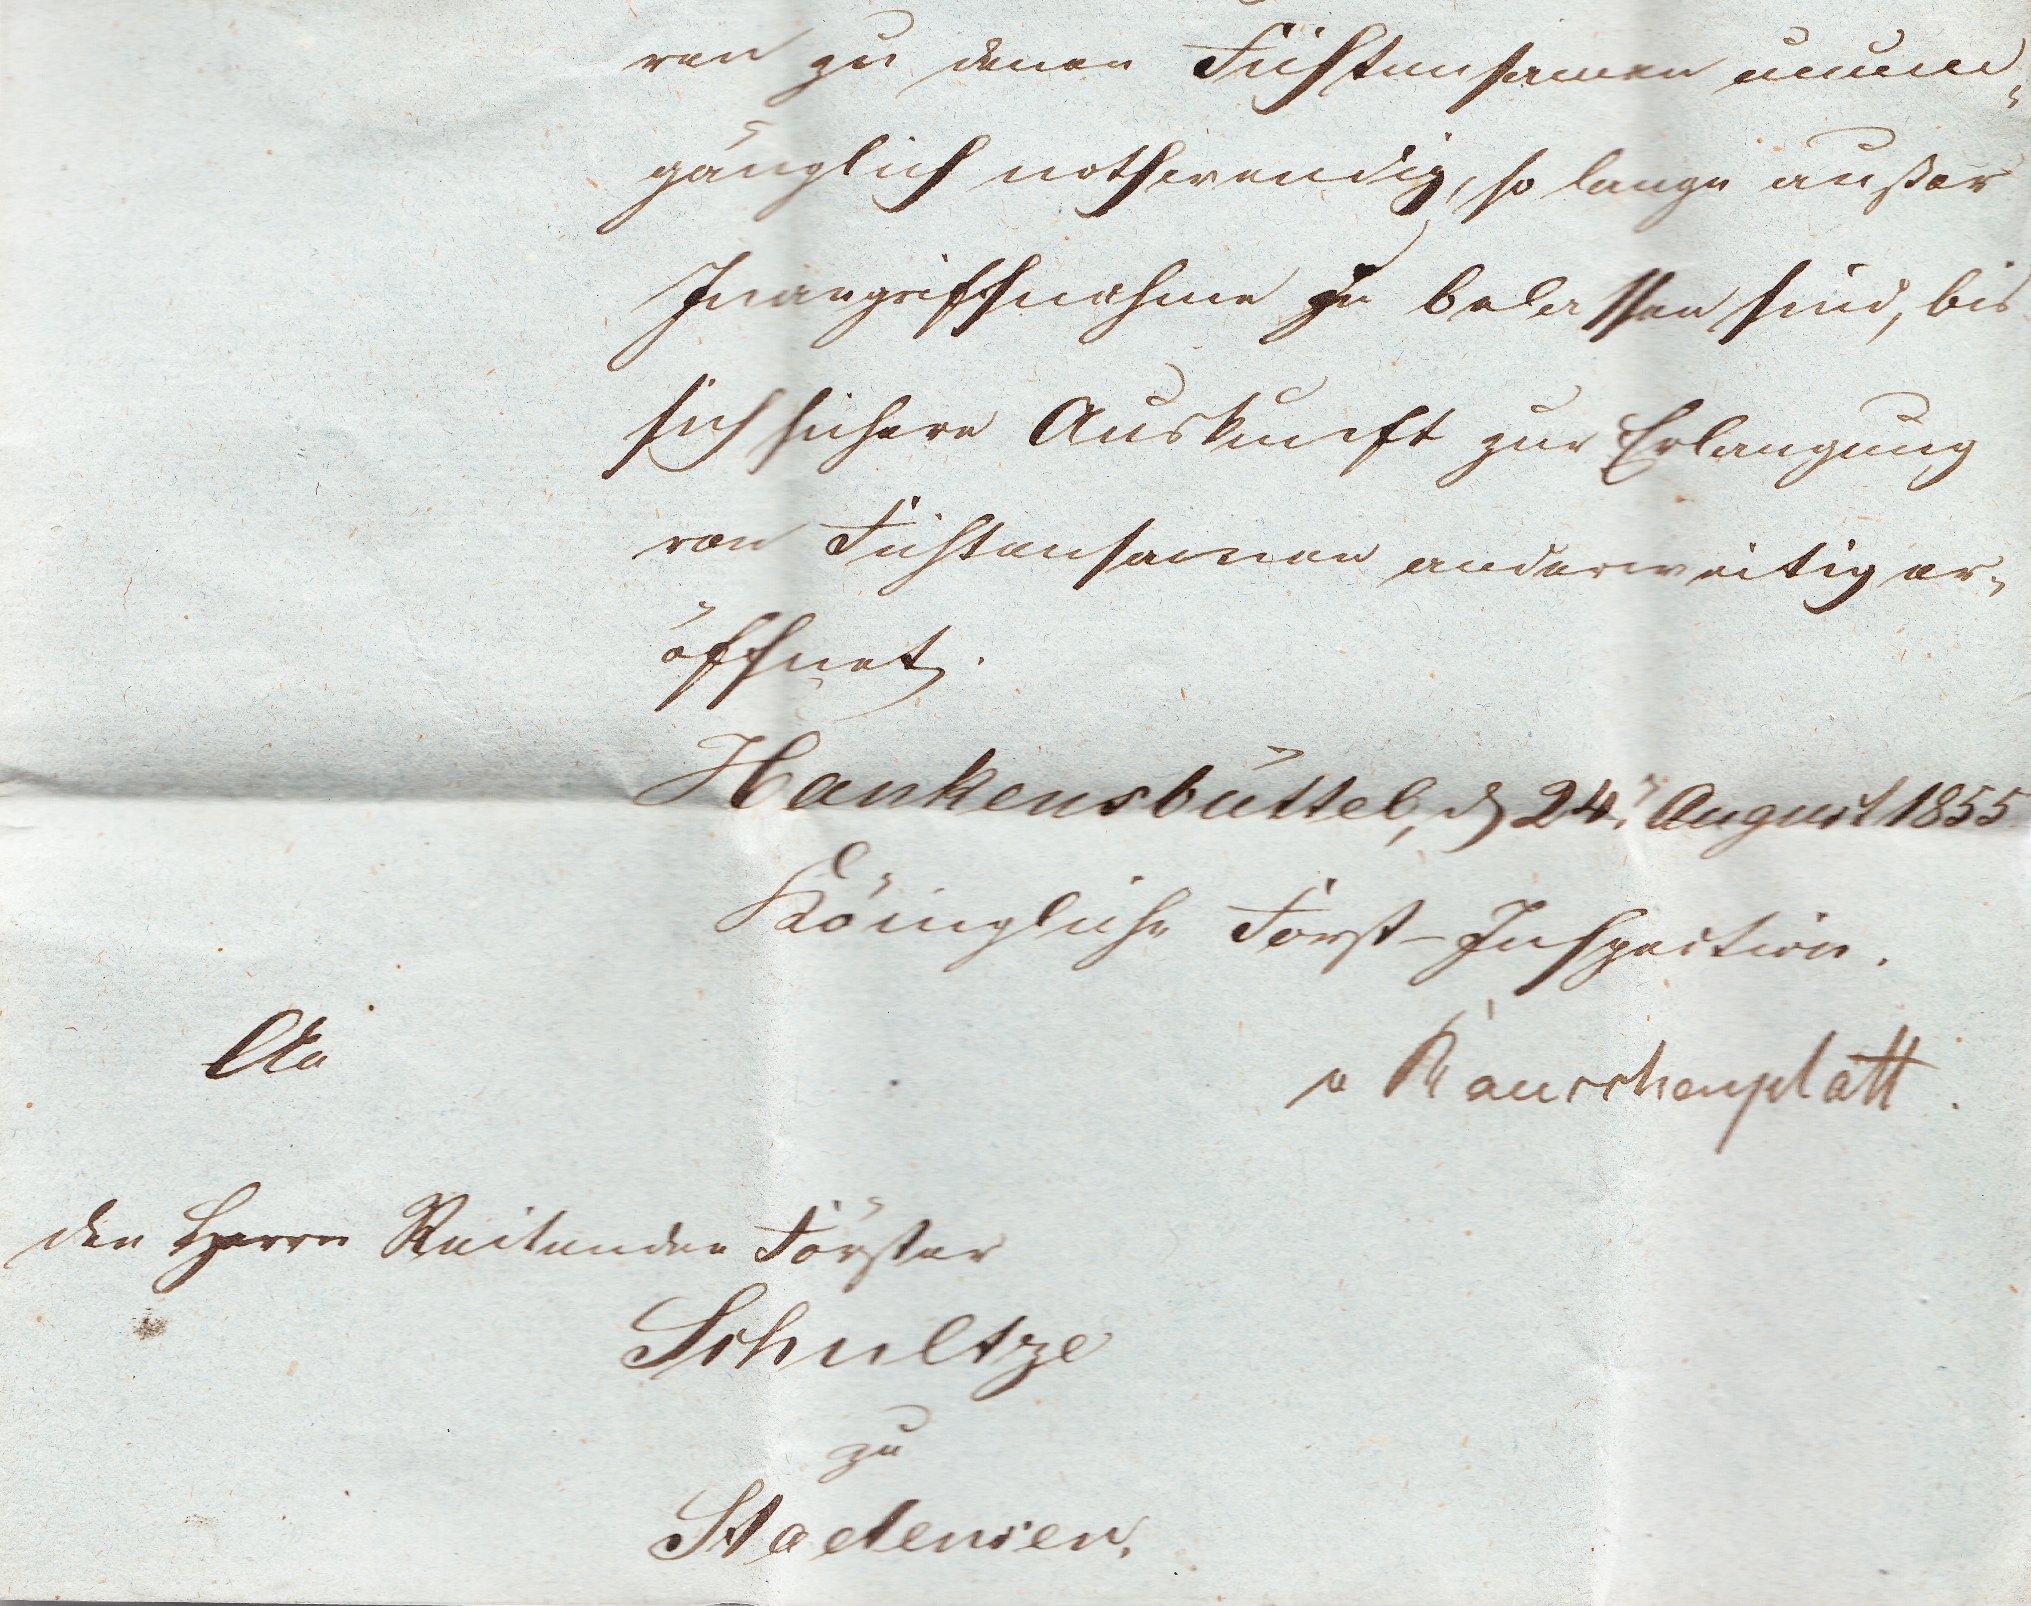 ren zu denen Fichtensamen unum-
gänglich nothwendig, so lange außer
Inangriffnahme zu belassen sind, bis
sich sichere Auskunft zur Erlangung
von Fichtensamen anderweitig er-
öffnet.
Hankensbüttel, d 24. August 1855
Königliche Forst-Inspection.
v Rauschenplatt.
An
den Herrn Reitenden Förster
Schultze
zu
Stadensen.